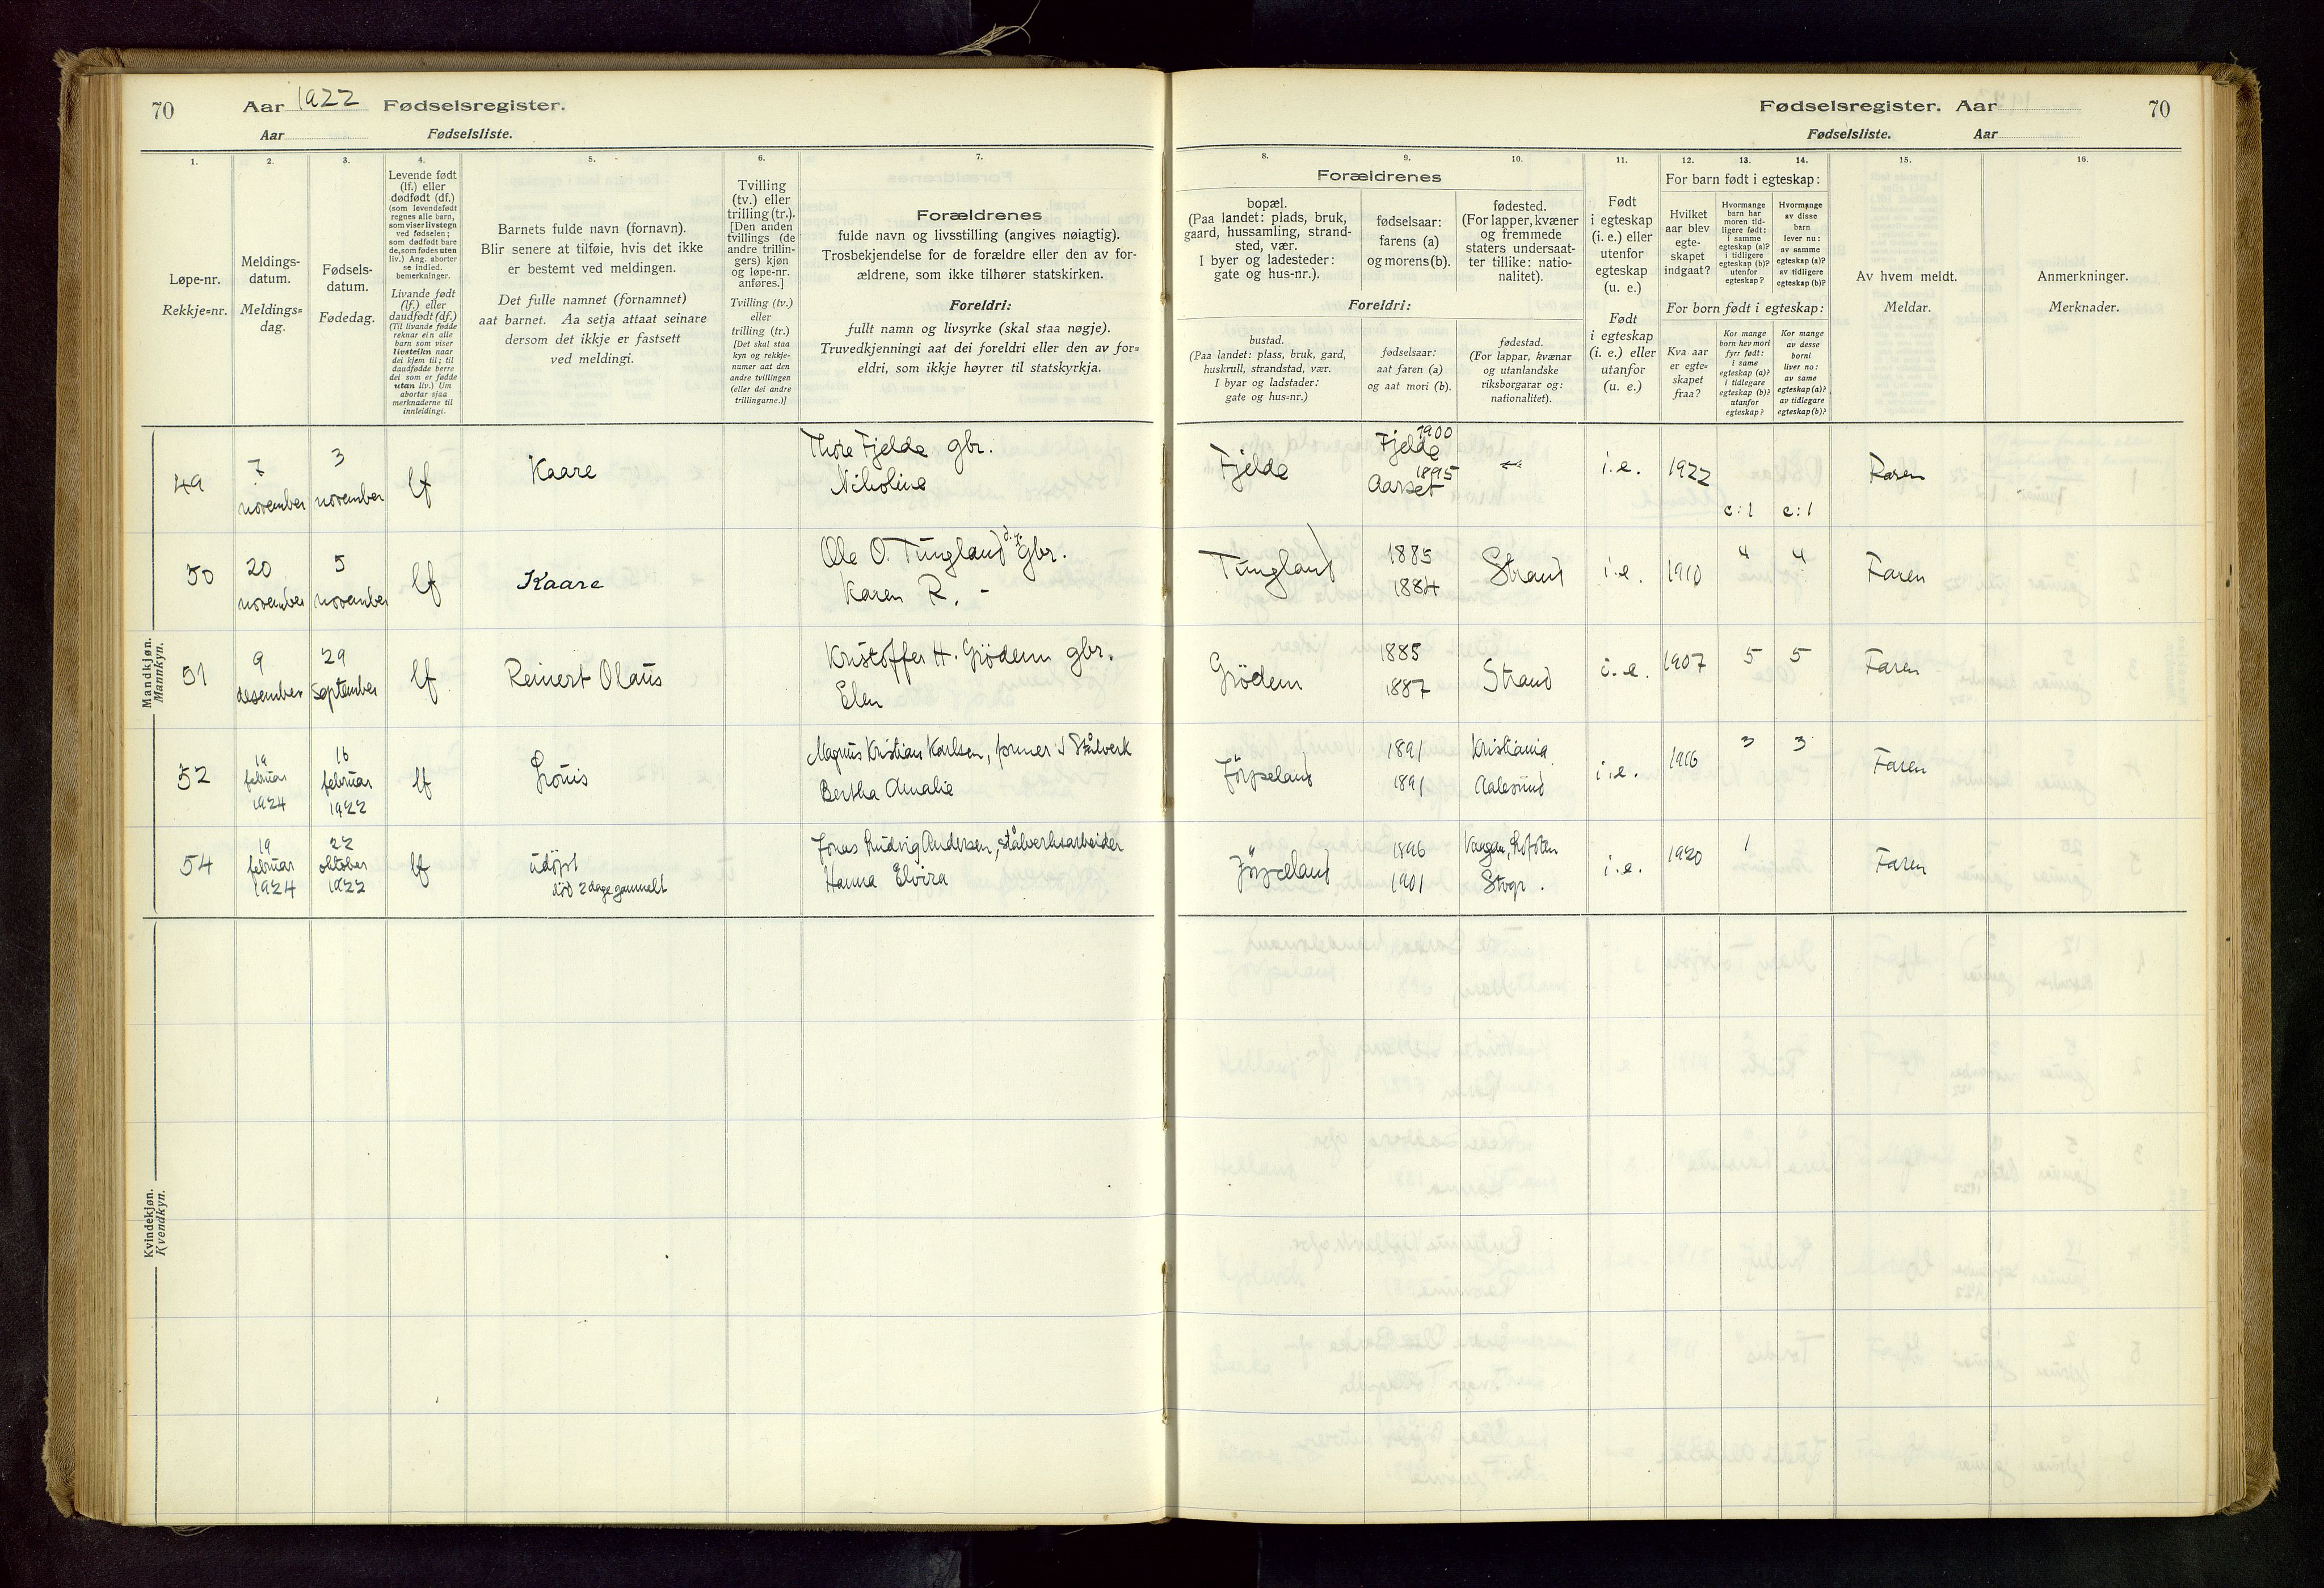 70 Aar 1922 Fødselsregister.
Aar Fødselsliste.
Fødselsregister. Aar 70
Fødselsliste. Aar
1. 2. 3. 4. 5. 6. 7. 8. 9. 10. 11. 12. 13. 14. 15. 16.
Løpe-nr.
Rekkje=nr.
Meldings-
datum.
Meldings=
dag.
Fødsels-
datum.
Fødedag.
Levende født
(lf.) eller
dødfødt (df.)
(som levendefødt
regnes alle barn,
som viser livstegn
ved fødselen;
som dødfødt bare
de, som fødes uten
liv.) Ang. aborter
se indled.
bemerkninger.
Livande født
(lf.) eller
daudfødt (df.)
(Til livande fødde
reknar ein alle
barn som viser
livsteikn naar
dei kjem til; til
daudfødde berre
dei som er fødde
utan liv.) Um
abortar sjaa
merknaderne til
innleidingi.
Barnets fulde navn (fornavn).
Blir senere at tilføie, hvis det ikke
er bestemt ved meldingen.
Det fulle namnet (fornamnet)
aat barnet. Aa setja attaat seinare
dersom det ikkje er fastsett
ved meldingi.
Tvilling
(tv.) eller
trilling (tr.).
[Den anden
tvillings (de
andre trillin-
gers) kjøn
og løpe-nr.
anføres.]
Tvilling (tv.)
eller
trilling (tr.)
[Det skal staa
kyn og rekkje-
numer aat den
andre tvillingen
(eller dei andre
trillingarne.)]
Forældrenes
fulde navn og livsstilling (angives nøiagtig).
Trosbekjendelse for de forældre eller den av for-
ældrene, som ikke tilhører statskirken.
Foreldri:
fullt namn og livsyrke (skal staa nøgje).
Truvedkjenningi aat dei foreldri eller den av for=
eldri, som ikkje høyrer til statskyrkja.
Forældrenes
bopæl.
(Paa landet: plads, bruk,
gaard, hussamling, strand-
sted, vær.
I byer og ladesteder:
gate og hus-nr.).
fødselsaar:
farens (a)
og morens (b).
fødested.
(For lapper, kvæner
og fremmede
staters undersaat-
ter tillike: natio-
nalitet).
Foreldri:
bustad.
(Paa landet: plass, bruk, gard,
huskrull, strandstad, vær.
I byar og ladstader:
gate og hus=nr.)
fødselsaar:
aat faren (a)
og aat mori (b).
fødestad.
(For lappar, kvænar
og utanlandske
riksborgarar og:
nationalitet).
Født
i egteskap
(i. e.) eller
utenfor
egteskap
(u. e.)
Født
i egteskap
(i. e.) eller
utanfor
(u. e.)
For barn født i egteskap:
Hvilket
aar blev
egte-
skapet
indgaat?
Hvormange
barn har
moren tid-
ligere født:
i samme
egteskap (a)?
i tidligere
egteskap (b)?
utenfor
egteskap?
Hvormange
av disse
barn
lever nu:
av samme
egteskap (a)?
av tidligere
egteskap (b)?
For born født i egteskap:
Kva aar
er egte=
skapet
fraa?
Kor mange
born hev mori
fyrr født:
i same
egteskap (a)?
i tidlegare
egteskap (b)?
utanfor
egteskap?
Kor mange
av desse
borni
liver no:
av same
egteskap (a)?
av tidlegare
egteskap (b)?
Av hvem meldt.
Meldar.
Anmerkninger.
Merknader.
Mandkjøn.
Mannkyn.
49 7 november 3 november lf Kaare
Thore Fjelde gbr.
Nikoline
Fjelde
Fjelde 1900
Aarset 1895
i.e. 1922 c:1 c:1 Faren
50 20 november 5 november lf Kaare
Ole O. Tungland gbr.
Karen R. -
Tungland 1885
1884
Strand i.e. 1910 4 4 Faren
51 9 desember 29 september lf Reinert Olaus
Kristoffer H. Grödem gbr.
Elen
Grödem 1885
1887
Strand i.e. 1907 5 5 Faren
52 19 februar 1924 16 februar 1922 lf Louis
Magnus Kristian Karlsen, former v Stålverk
Bertha Amalie
Jörpeland 1891 Kristiania
1891 Aalesund
i.e. 1916 3 3 Faren
54 19 februar 1924 22 oktober 1922 lf udøpt
död 2 dage gammelt
Jonas Ludvig Andersen, stålverksarbeider
Hanna Elvira
Jörpeland 1896 Vaagan, Lofoten
1901 Stvgr.
i.e. 1920 1 Faren
Kvindekjøn.
Kvendkyn.